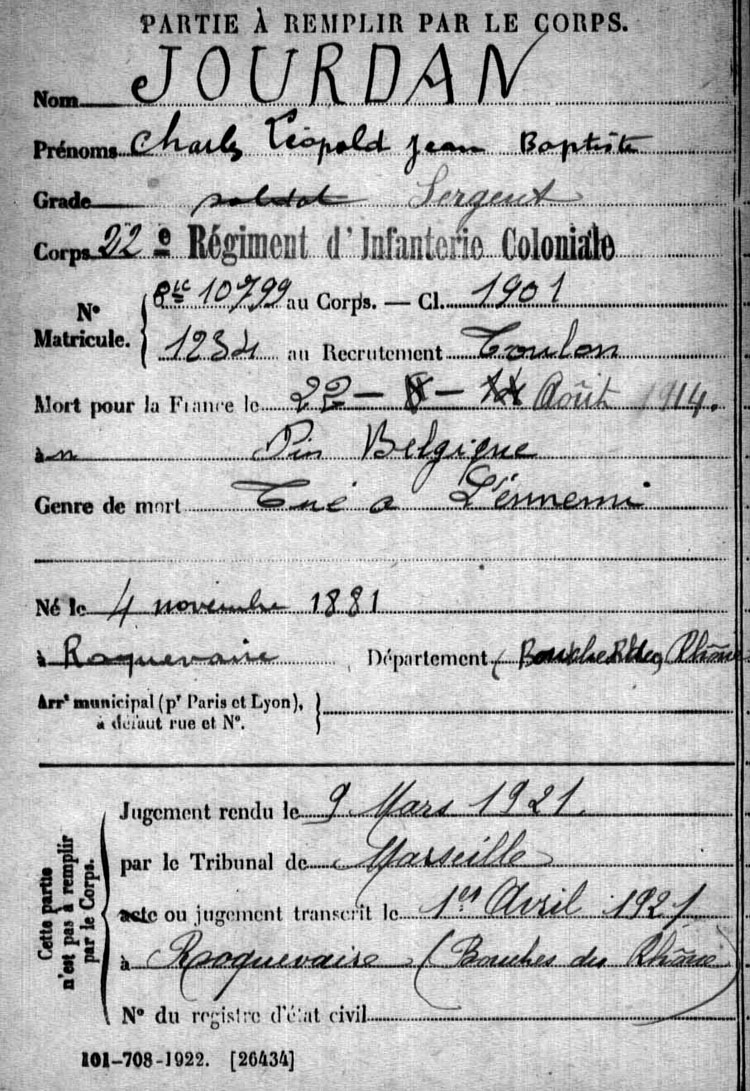 PARTIE À REMPLIR PAR LE CORPS.
Nom JOURDAN
Prénoms Charles Léopold Jean Baptiste
Grade soldat Sergent
Corps 22e Régiment d'Infanterie Coloniale
N° Matricule. 10799 au Corps. — Cl. 1901
1234 au Recrutement Toulon
Mort pour la France le 22 — 8 — Août 1914.
à Pin Belgique
Genre de mort Tué a L'énnemi
Né le 4 novembre 1881
à Roquevaire Département Bouches du Rhône
Arrt municipal (pr Paris et Lyon),
à défaut rue et N°.
Cette partie n'est pas à remplir par le Corps.
Jugement rendu le 9 Mars 1921.
par le Tribunal de Marseille
acte ou jugement transcrit le 1er Avril 1921
à Roquevaire (Bouches du Rhône)
N° du registre d'état civil
101-708-1922. [26434]